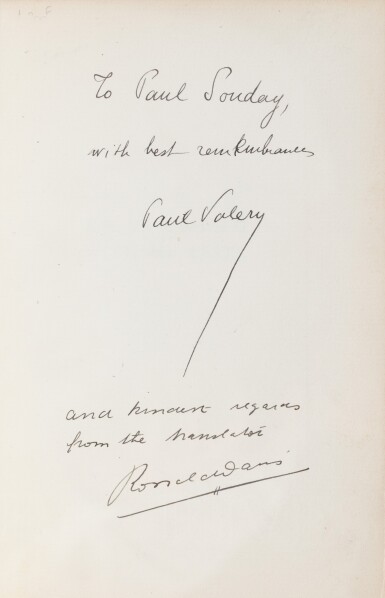 To Paul Souday,
with best remembrances
Paul Valery
and kindest regards
from the translator
Ronald Davis